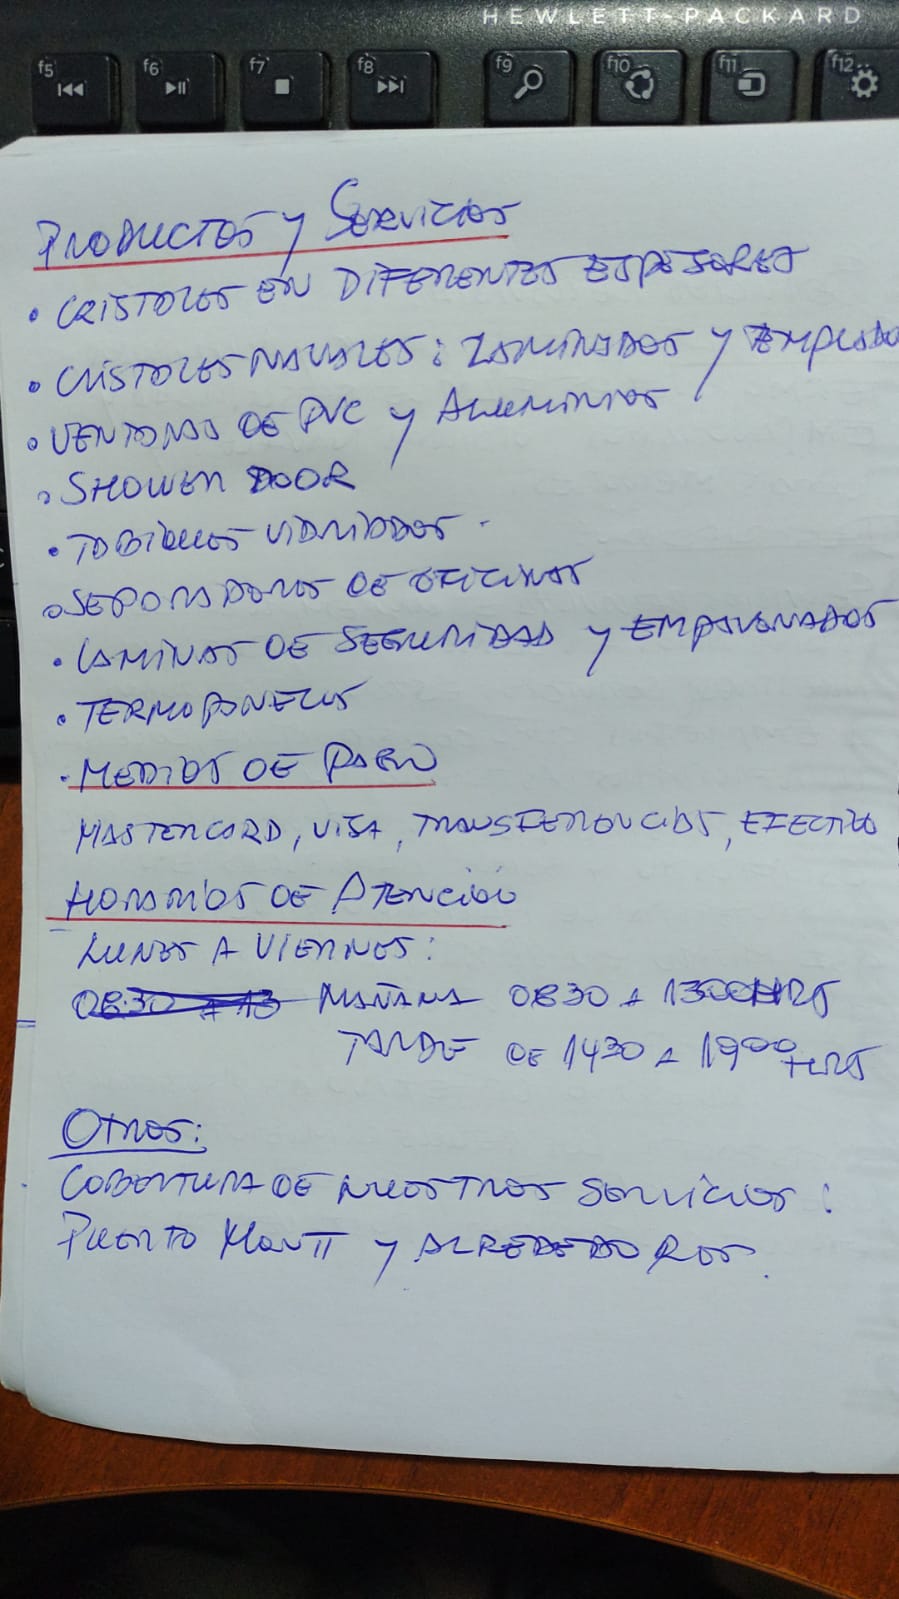 HEWLETT-PACKARD
f5 f6 f7 f8 f9 f10 f11 f12
PRODUCTOS y SERVICIOS
• CRISTALES EN DIFERENTES ESPESORES
• CRISTALES NAVALES: LAMINADOS y TEMPLADO
• VENTANAS DE PVC y ALUMINIOS
• SHOWER DOOR
• TABIQUES VIDRIADOS.
• SEPARADORES DE OFICINAS
• LAMINAS DE SEGURIDAD y EMPAVONADOS
• TERMOPANELES
• MEDIOS DE PAGO
MASTERCARD, VISA, TRANSFERENCIAS, EFECTIVO
HORARIOS DE ATENCIÓN
LUNES A VIERNES:
08:30 A 13 MAÑANA 0830 A 1300 HRS
TARDE DE 1430 A 1900 HRS
OTROS:
COBERTURA DE NUESTROS SERVICIOS:
PUERTO MONTT y ALREDEDORES.